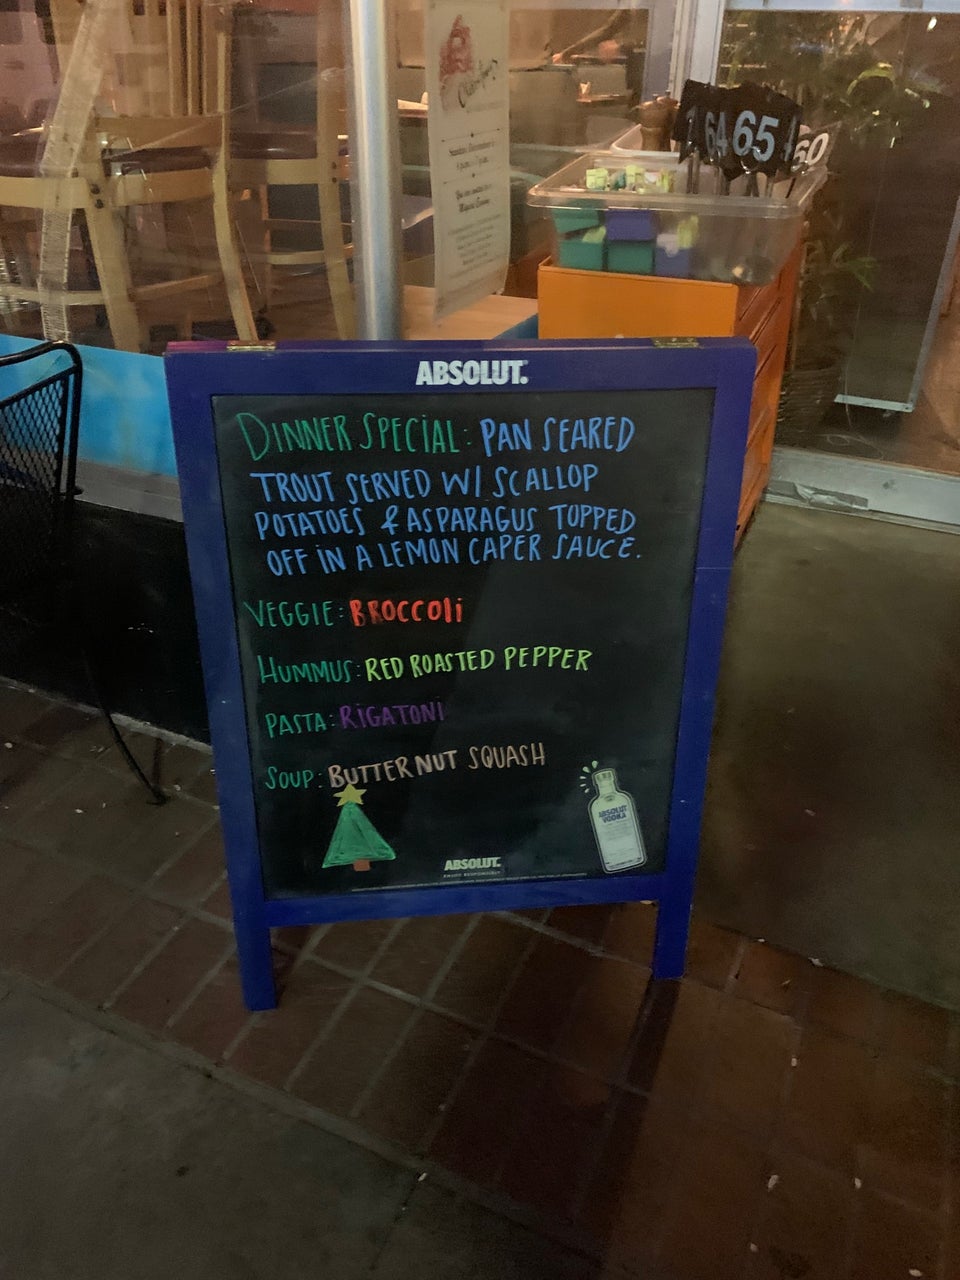 64 65 60
ABSOLUT.
DINNER SPECIAL: PAN SEARED
TROUT SERVED W/ SCALLOP
POTATOES & ASPARAGUS TOPPED
OFF IN A LEMON CAPER SAUCE.
VEGGIE: BROCCOLI
HUMMUS: RED ROASTED PEPPER
PASTA: RIGATONI
SOUP: BUTTERNUT SQUASH
ABSOLUT
VODKA
ABSOLUT.